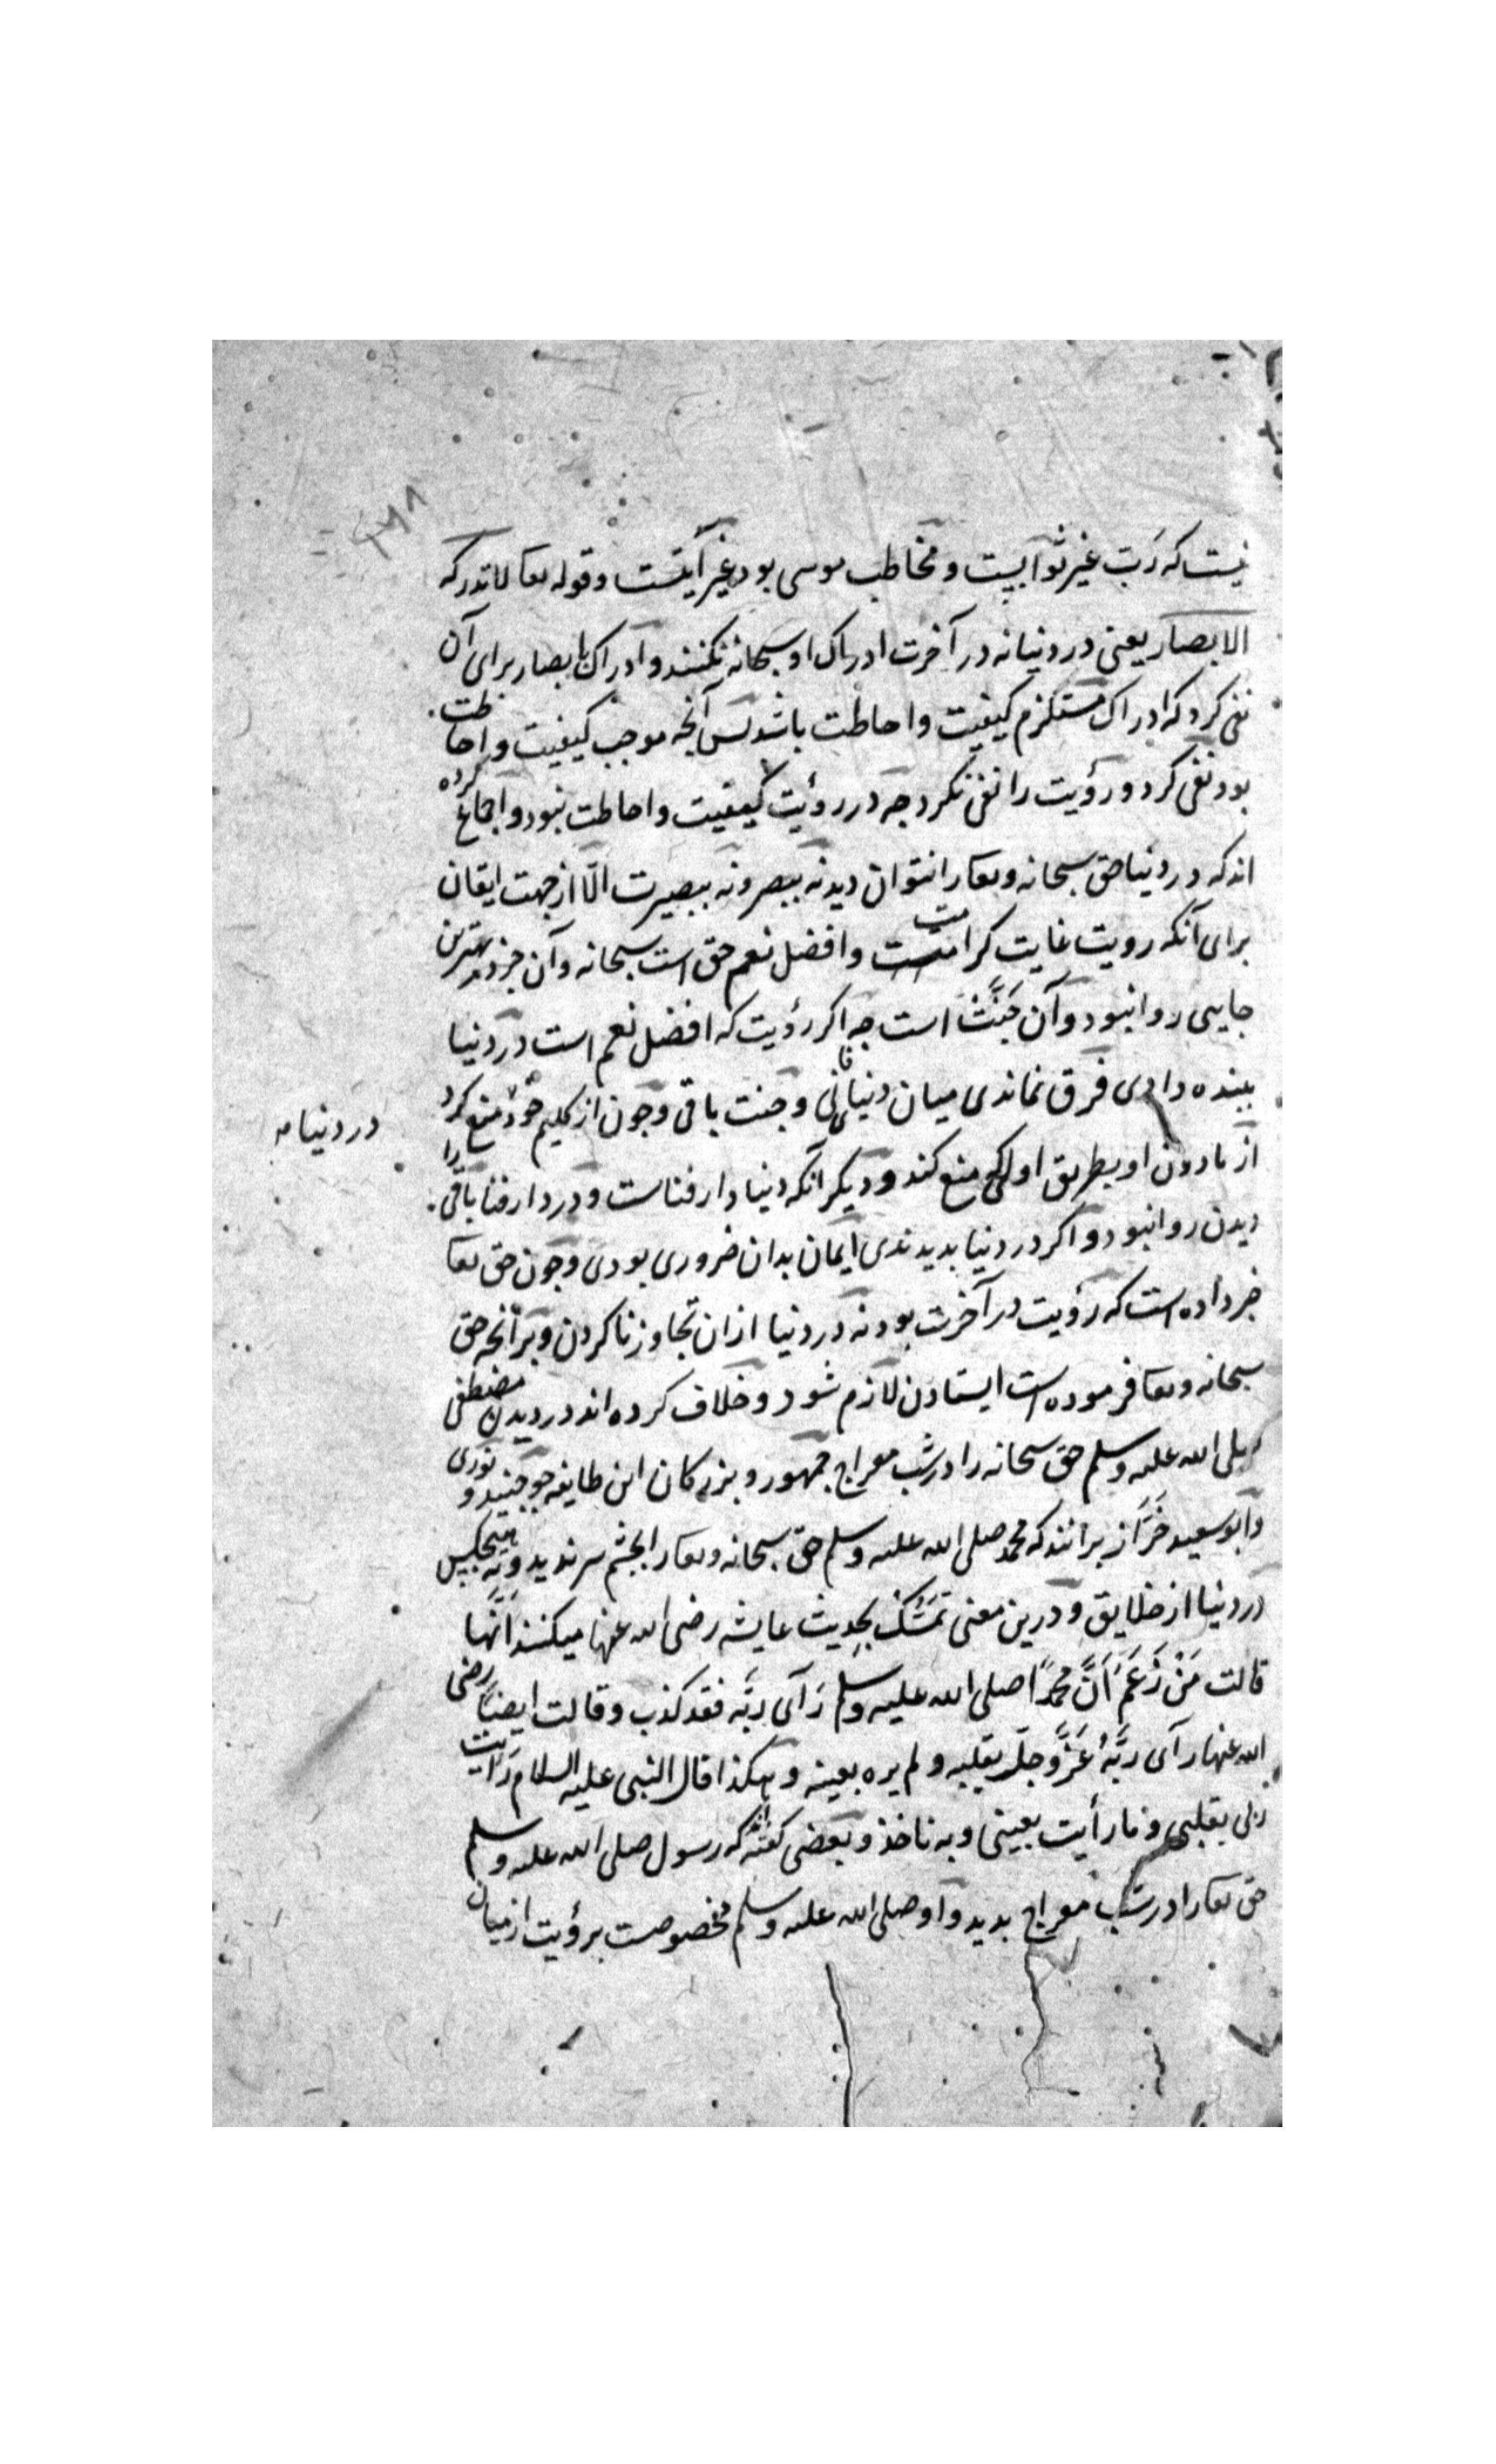 نیست که رَبّ غیر ثوابیست و مخاطب موسی بود غیر آیتست و قوله تعا لا تدرکه
الابصار یعنی در دنیا نه در آخرت ادراک او سبحانه نکنند و ادراک بابصار برای آن
نفی کرد که ادراک مستلزم کیفیت و احاطت باشد پس آنچه موجب کیفیت و احاطت
بود نفی کرد و رؤیت را نفی نکرد چه در رؤیت کیفیت و احاطت نبود و اجماع کرده
اند که در دنیا حق سبحانه و تعا را نتوان دید نه ببصر و نه ببصیرت الّا از جهت ایقان
برای آنکه رویت غایت کرامتست و افضل نعم حق است سبحانه و آن جز در بهترین
جایی روا نبود و آن جَنّت است چه اکر رؤیت که افضل نعم است در دنیا
ببنده دادی فرق نماندی میان دنیا فانی و جنت باقی و چون از کلیم خود منع کرد
در دنیا
از مادون او بطریق اولی منع کند و دیکر آنکه دنیا دار فناست و در دار فنا باقی را
دیدن روا نبود و اکر در دنیا بدیدندی ایمان بدان ضروری بودی و چون حق تعا
خبر داده است که رؤیت در آخرت بود نه در دنیا ازان تجاوز ناکردن و برآنچه حق
سبحانه و تعا فرموده است ایستادن لازم شود و خلاف کرده اند در دیدن مصطفی
صلی الله علیه وسلم حق سبحانه را در شب معراج جمهور و بزرکان این طایفه چو جنید و نوری
و ابوسعید خَرّاز برانند که محمد صلی الله علیه وسلم حق سبحانه و تعا را بچشم سر ندید و نه هیچکس
در دنیا از خلایق و درین معنی تمسُّک بحدیث عایشه رضی الله عنها میکنند اَنّها
قالت مَنْ زَعَمَ اَنَّ محمدًا صلی الله علیه وسلم رَآی ربَّه فقد کذب و قالت ایضاً رضی
الله عنها رآی ربَّهُ عَزَّ وجلّ بقلبه و لم یره بعینه و هکذا قال النبی علیه السلام رَایت
ربی بقلبی و ما رأیت بعینی و به ناخذ و بعضی کفته اند که رسول صلی الله علیه وسلم
حق تعا را در شب معراج بدید و او صلی الله علیه وسلم مخصوصت برؤیت از میان